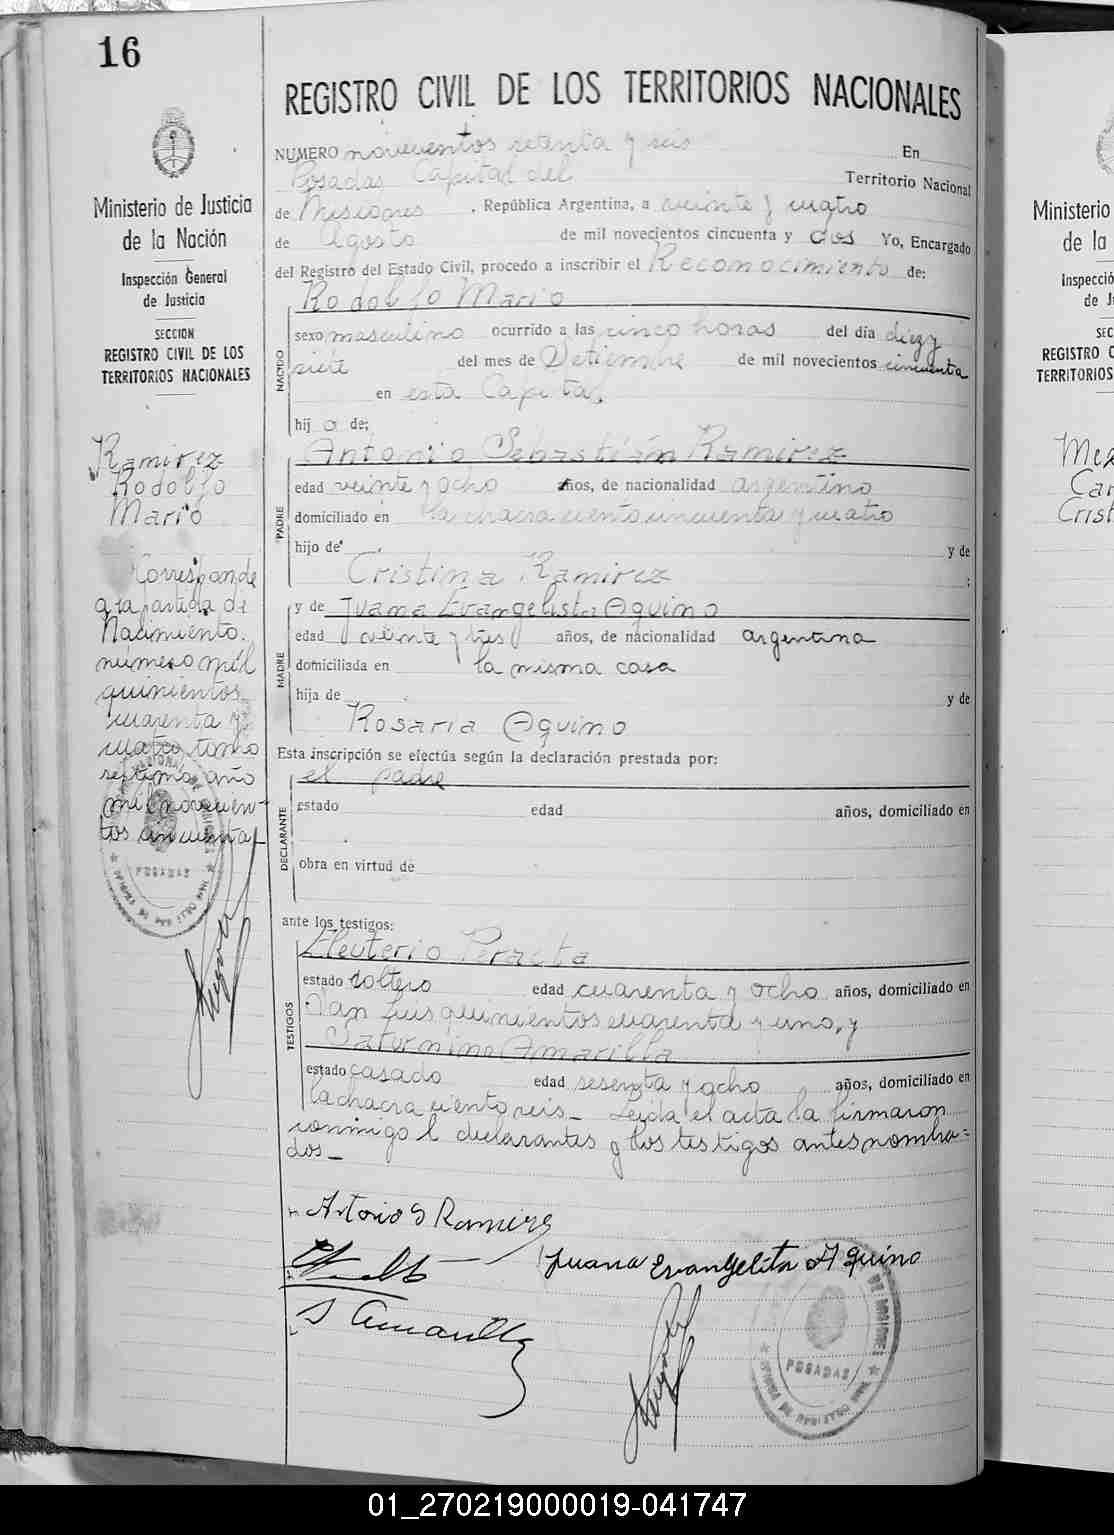 16
REGISTRO CIVIL DE LOS TERRITORIOS NACIONALES
Ministerio de Justicia
de la Nación
Inspección General
de Justicia
SECCION
REGISTRO CIVIL DE LOS
TERRITORIOS NACIONALES
Ramirez
Rodolfo
Mario
Corresponde
a la partida de
Nacimiento.
número mil
quinientos
cuarenta y
cuatro tomo
septimo año
mil novecien-
tos cincuenta
NUMERO novecientos setenta y seis En
Posadas Capital del Territorio Nacional
de Misiones, República Argentina, a veinte y cuatro
de Agosto de mil novecientos cincuenta y dos Yo, Encargado
del Registro del Estado Civil, procedo a inscribir el Reconocimiento de:
Rodolfo Mario
NACIDO
sexo masculino ocurrido a las cinco horas del día diez y
siete del mes de Setiembre de mil novecientos cincuenta
en esta Capital.
hij o de:
Antonio Sebastián Ramirez
PADRE
edad veinte y ocho años, de nacionalidad argentino
domiciliado en la chacra ciento cincuenta y cuatro
hijo de y de
Cristina Ramirez ;
y de Juana Evangelista Aquino
MADRE
edad veinte y tres años, de nacionalidad argentina
domiciliada en la misma casa
hija de y de
Rosaria Aquino
Esta inscripción se efectúa según la declaración prestada por:
el padre
DECLARANTE
estado edad años, domiciliado en
obra en virtud de
ante los testigos:
Eleuterio Peralta
TESTIGOS
estado soltero edad cuarenta y ocho años, domiciliado en
San Luis quinientos cuarenta y uno, y
Saturnino Amarilla
estado casado edad sesenta y ocho años, domiciliado en
la chacra ciento seis_ Leida el acta la firmaron
conmigo l declarantes y los testigos antes nombra=
dos_
Antonio S Ramirez
Juana Evangelita Aquino
S Amarilla
POSADAS
POSADAS
DE MISIONES
Ministerio
de la
Inspecció
de J
SEC
REGISTRO C
TERRITORIOS
Car
Crist
01_270219000019-041747